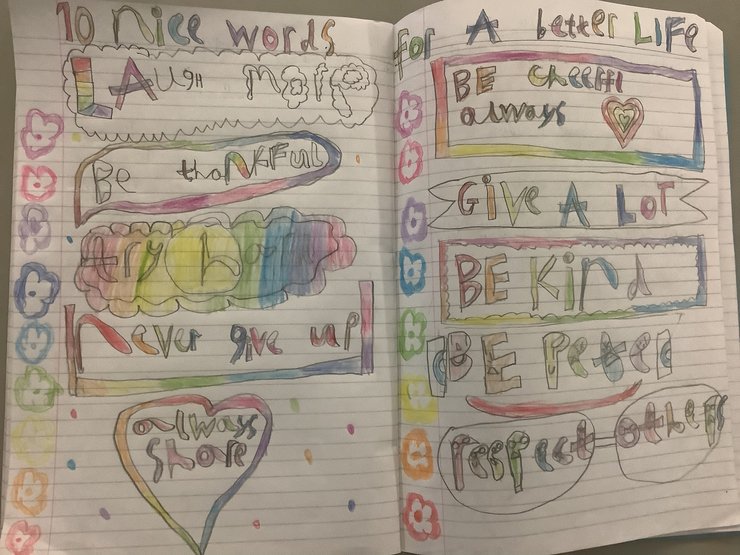 10 nice words
LAugh more
Be thaNKFul
try hard
Never give up
always
share
for A better LIFe
BE cheerfl
always
GIVE A LOT
BE Kind
BE Peter
respect others